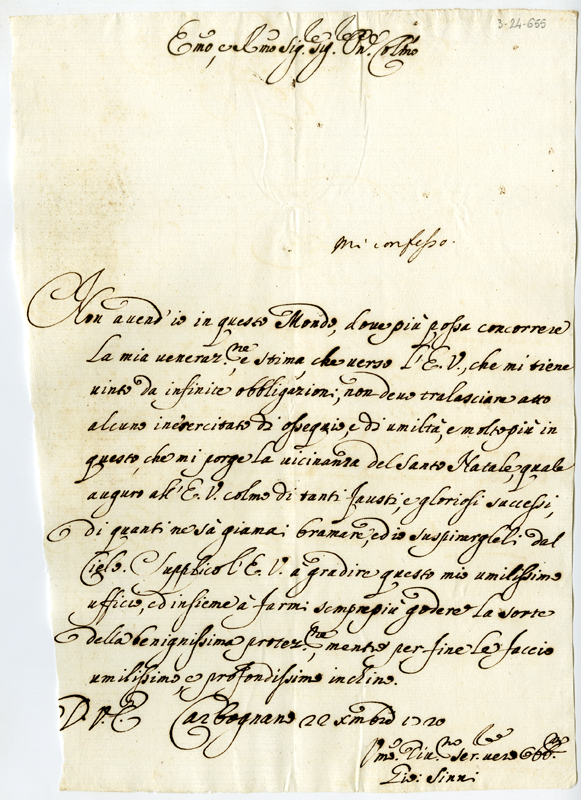 3-24-655
Emo, e Rmo Sig. Sig. Pne. Colmo
Mi confesso.
Non avend'io in questo Mondo, dove più possa concorrere
la mia veneraz.ne, e stima che verso l'E.V., che mi tiene
vinto da infinite obbligazioni, non devo tralasciare atto
alcuno inesercitato di ossequio, e di umiltà, e molto più in
questo, che mi porge la vicinanza del Santo Natale, quale
auguro all'E.V. colmo di tanti fausti, e gloriosi successi,
di quanti ne sà giamai bramare, ed io suspirargleli dal
Cielo. Supplico l'E.V. à gradire questo mio umilissimo
ufficio, ed insieme à farmi semprepiù godere la sorte
della benignissima protez.ne, mentre per fine le faccio
umilissimo, e profondissimo inchino.
D. V. E. Carbognano 22 Xmbre 1720
Umo. Div.mo Ser. vero Obb.
Gio: Sinni